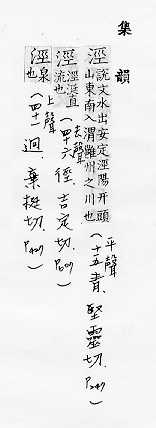 集韻
涇 說文水出安定涇陽开頭
山東南入渭雝州之川也
(平聲十五青，堅靈切，P.247)
涇 涇涏直
流也 (去聲四十六徑，吉定切，P.609)
涇 泉
也 (上聲四十一迥，棄挺切，P.427)